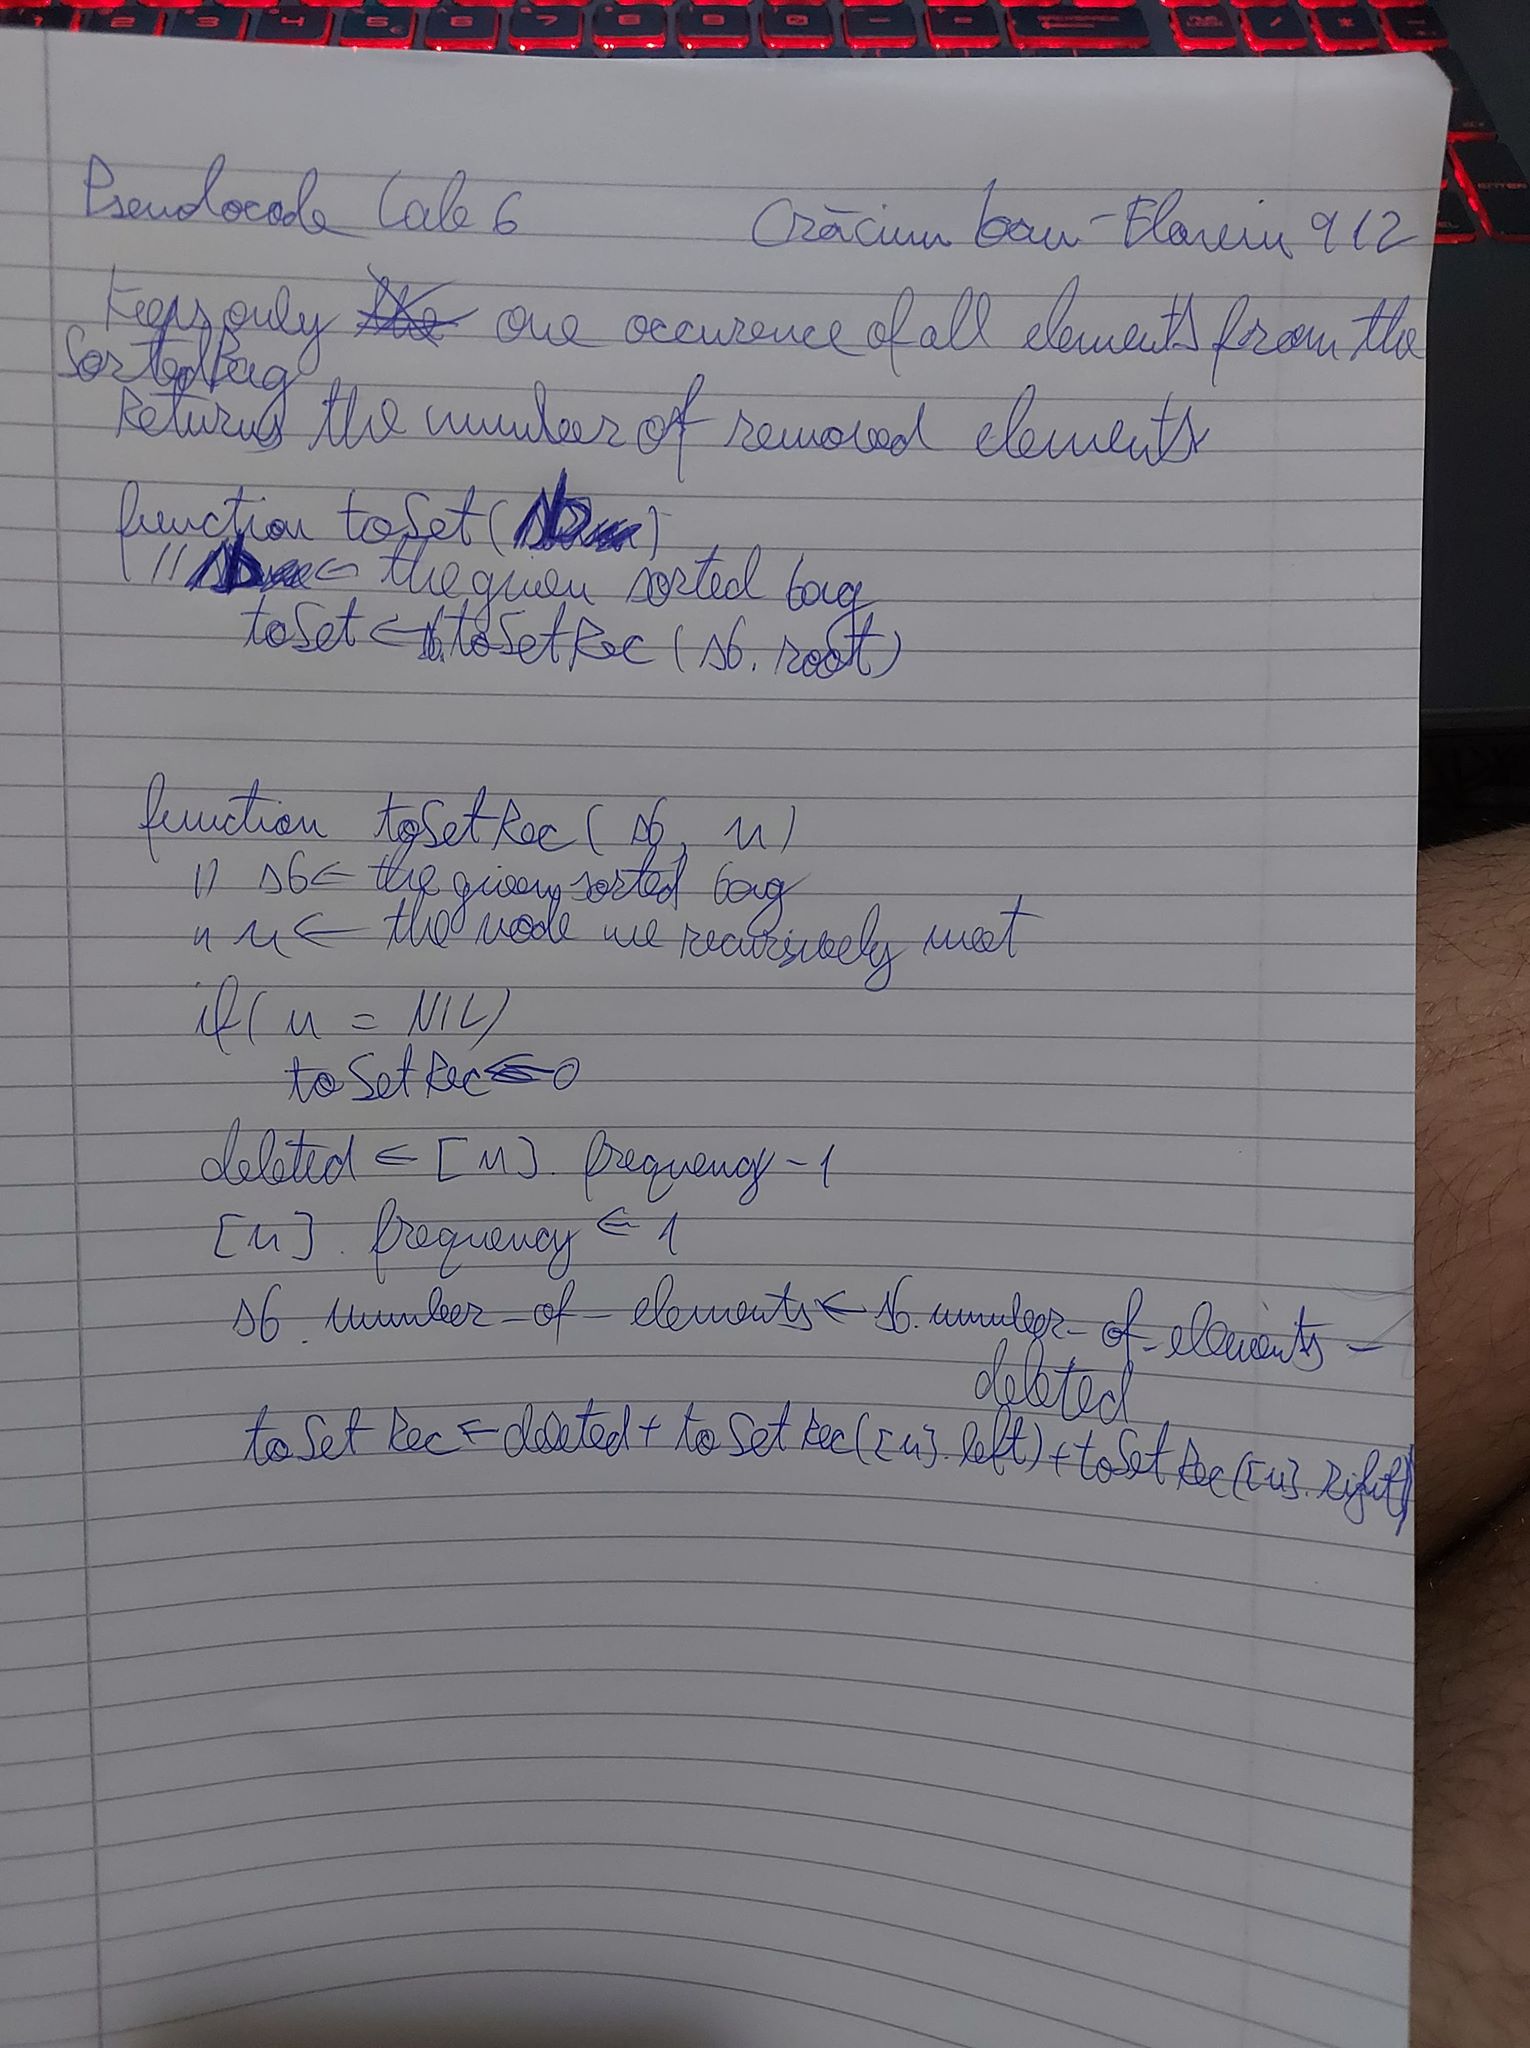 Pseudocode Lab 6 Crăciun Ioan-Florin 912
Keeps only one occurence of all elements from the
SortedBag
Returns the number of removed elements
function toSet(sb)
// sb ← the given sorted bag
toSet ← sb.toSetRec(sb.root)
function toSetRec(sb, n)
// sb ← the given sorted bag
" n ← the node we recursively meet
if(n = NIL)
toSetRec ← 0
deleted ← [n]. frequency - 1
[n]. frequency ← 1
sb. number_of_elements ← sb.number_of_elements -
deleted
toSetRec ← deleted + toSetRec([n].left) + toSetRec([n].right)